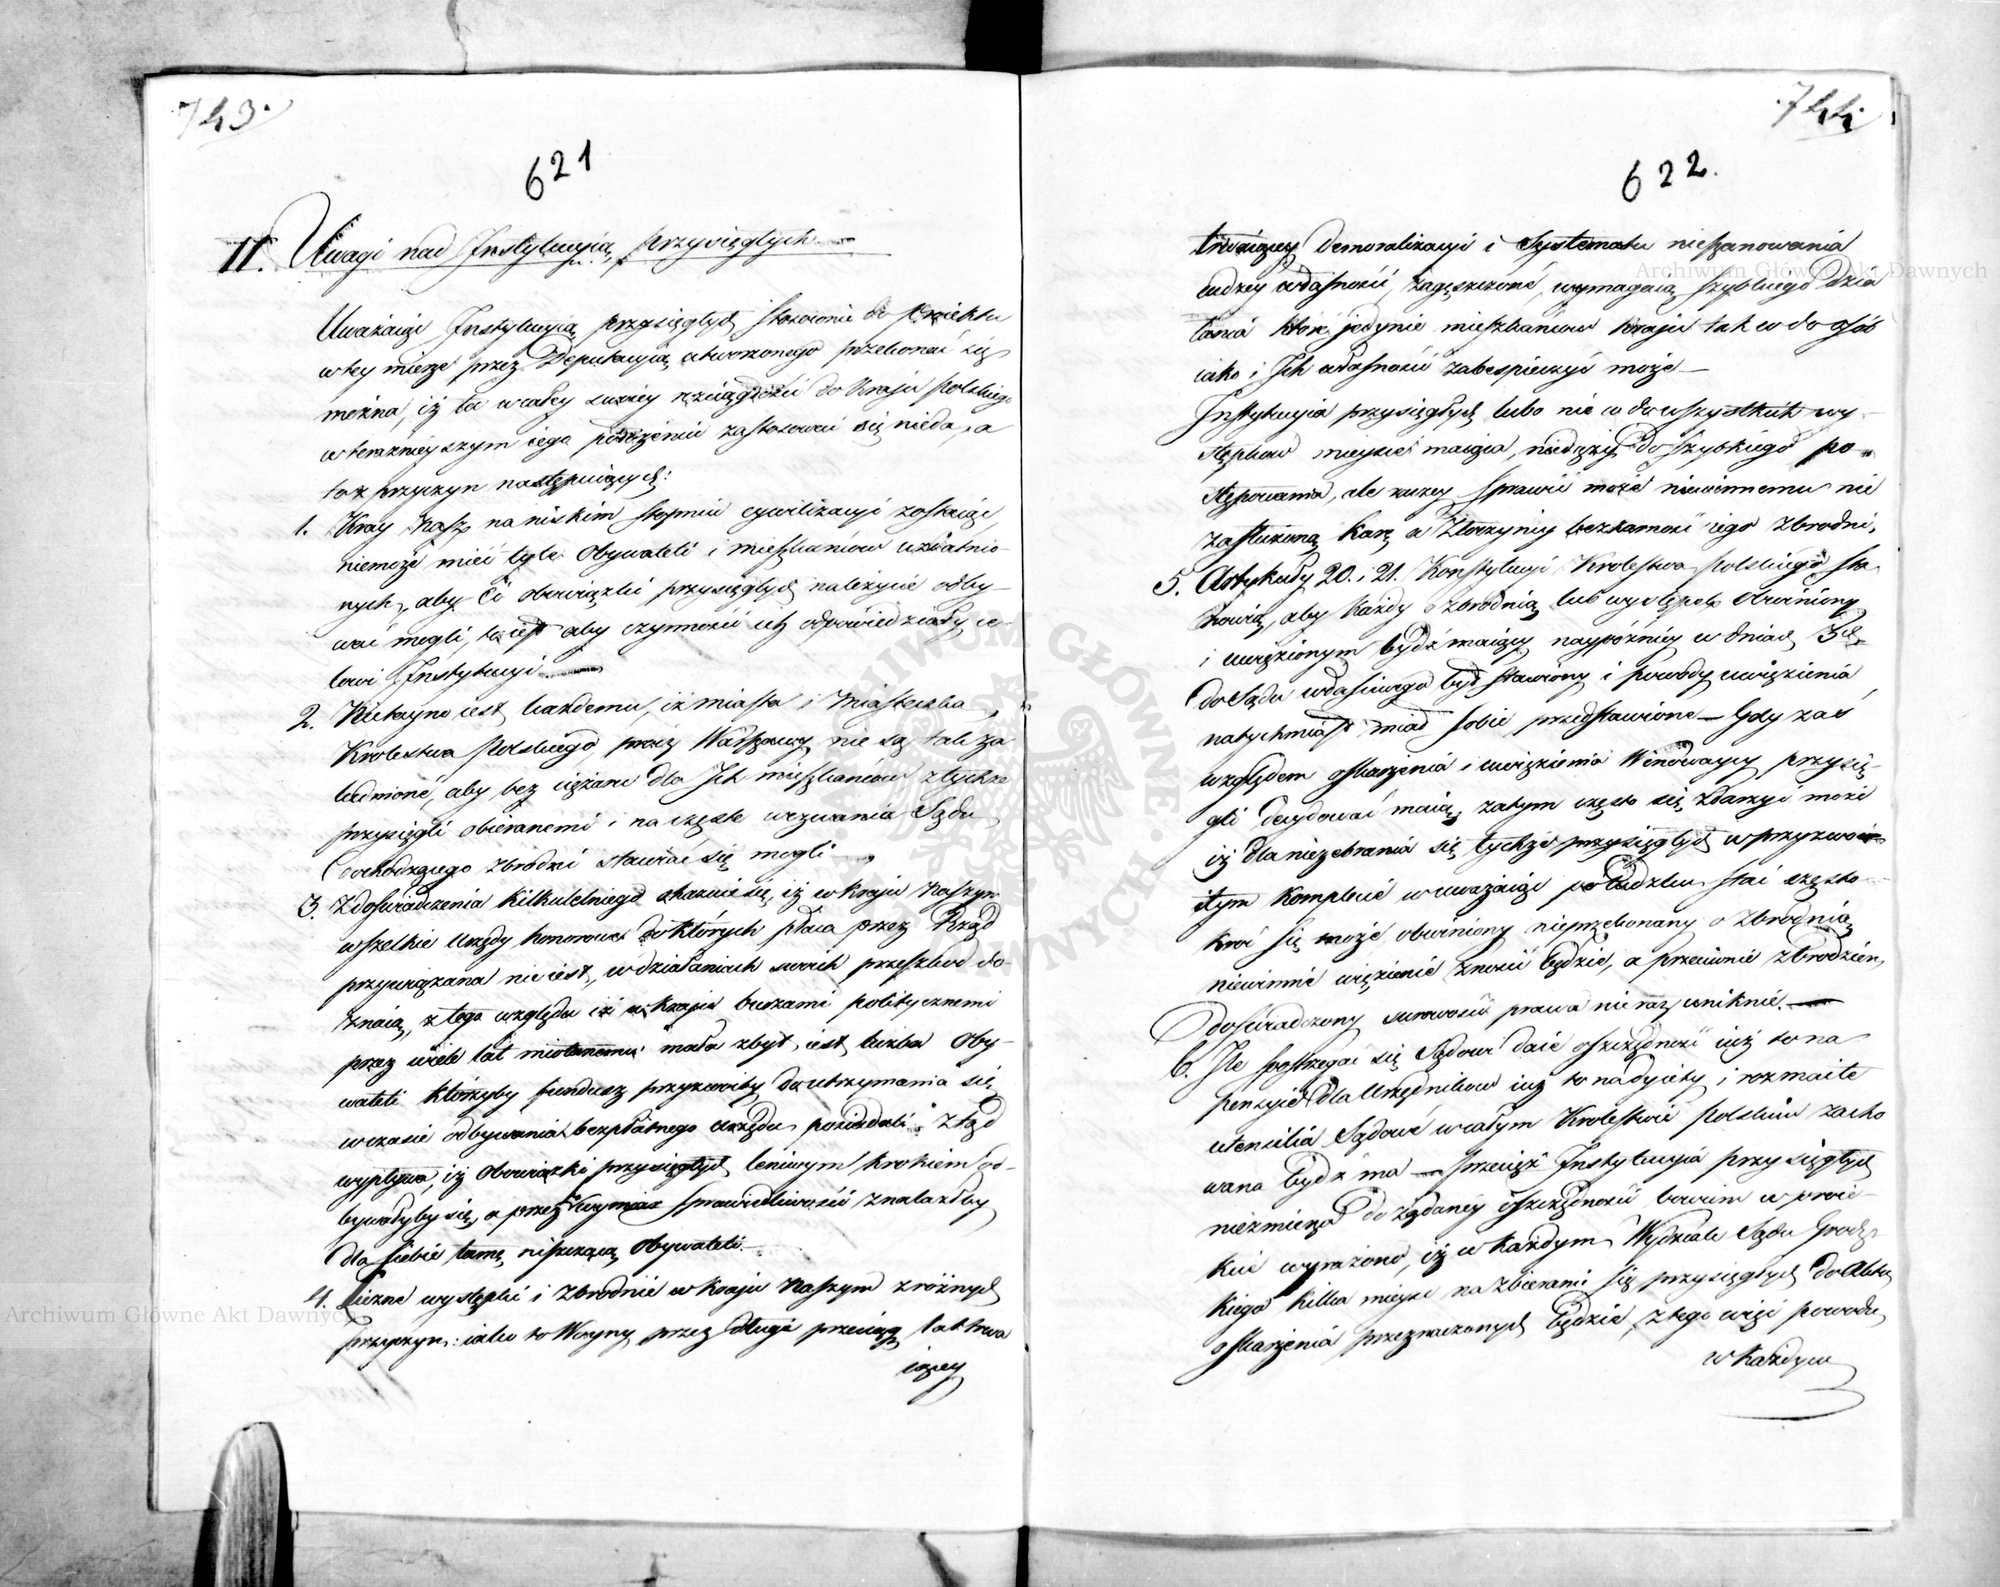 743.
621
II. Uwagi nad Instytucyią przysięgłych
Uważaiąc Instytucyią przysięgłych stosownie do proiektu
w tey mierze przez Deputacyią utworzonego przekonać się
można, iż ta w całey swoiey rozciągłości do Kraiu Polskiego
w teraźnieyszym iego położeniu zastosować się nieda, a
to z przyczyn następuiących:
1. Kray Nasz na niskim stopniu cywilizacyi zostaiąc,
niemoże mieć tyle Obywateli i mieszkańców uzdatnio-
nych, aby Ci obowiązki przysięgłych należycie odby-
wać mogli, to iest aby czynności ich odpowiedziały ce-
lowi Instytucyi
2. Nietayno iest każdemu, iż miasta i Miasteczka
Krolestwa Polskiego prócz Warszawy nie są tak za
ludnione, aby bez ciężaru dla Ich mieszkańców z tychże
przysięgli obieranemi i na częste wezwania Sądu
dochodzącego zbrodni stawiać się mogli
3. Z doświadczenia kilkuletniego okazuie się, iż w kraiu Naszym
wszelkie Urzędy honorowe do których płaca przez Rząd
przywiązana nie iest, w działaniach swoich przeszkod do-
znaią, z tego względu iż w kraiu burzami politycznemi
przez wiele lat miotanemu mała zbyt iest liczba Oby-
wateli którzyby fundusz przyzwoity do utrzymania się
w czasie odbywania bezpłatnego urzędu posiadali. Ztąd
wypływa, iż Obowiązki przysięgłych leniwym krokiem od-
bywałyby się, a przez to wymiar sprawiedliwości znalazłby
dla siebie tamę niszczącą Obywateli.
4. Liczne występki i Zbrodnie w kraiu Naszym z różnych
przyczyn: iako to Woyny przez długi przeciąg lat trwa
iącey
744.
622.
trwaiącey Demoralizacyi i Systematu nieszanowania
cudzey własności, zagęszczone, wymagaią szybkiego Dzia
łania które jedynie mieszkańców Kraiu tak co do osób
iako i Ich własności zabespieczyć może
Instytucyia przysięgłych lubo nie w do wszystkich wy-
stępków mieysce maiąca, niedąży do szybkiego po-
stępowania, ale raczey sprawić może niewinnemu nie
zasłużoną karę a Złoczyńcy bezkarność iego zbrodni.
5. Artykuły 20. i 21. Konstytucyi Krolestwa Polskiego sta
nowią, aby każdy o zbrodnią lub występek obwiniony
i uwięzionym bydź maiący naypóźniey w dniach 3ch
do Sądu właściwego był stawiony i powody uwięzienia
natychmiast miał sobie przedstawione — Gdy zaś
względem oskarżenia i uwięzienia Winowaycy przysię-
gli decydować maią, zatym często się zdarzyć może
iż dla niezebrania się tychże przysięgłych w przyzwo-
itym komplecie w uważaiąc po ludzku stać często-
kroć się może obwiniony nieprzekonany o zbrodnią
niewinnie więzienie znosić będzie, a przeciwnie zbrodzień
doświadczony surowości prawa nie raz uniknie.
6. Ile postrzegać się Sądowi daie oszczędność iuż to na
pensyie dla Urzędników iuż to na dyiety i rozmaite
utensilia Sądowe w całym Krolestwie Polskim zacho
wana bydź ma — przecież Instytucyia przysięgłych
niezmierza do żądaney oszczędności bowiem w proie-
kcie wyrażono, iż w każdym Wydziale Sądu Grodz
kiego kilka mieysc na zbieranie się przysięgłych do Aktu
oskarżenia przeznaczonych będzie, z tego więc powodu
w każdym